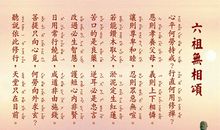 六祖無相頌
心平何勞持戒？行直何用修禪？
恩則孝養父母，義則上下相憐。
讓則尊卑和睦，忍則眾惡無喧。
若能鑽木出火，淤泥定生紅蓮。
苦口的是良藥，逆耳必是忠言。
改過必生智慧，護短心內非賢。
日用常行饒益，成道非由施錢。
菩提只向心覓，何勞向外求玄？
聽說依此修行，只在目前。